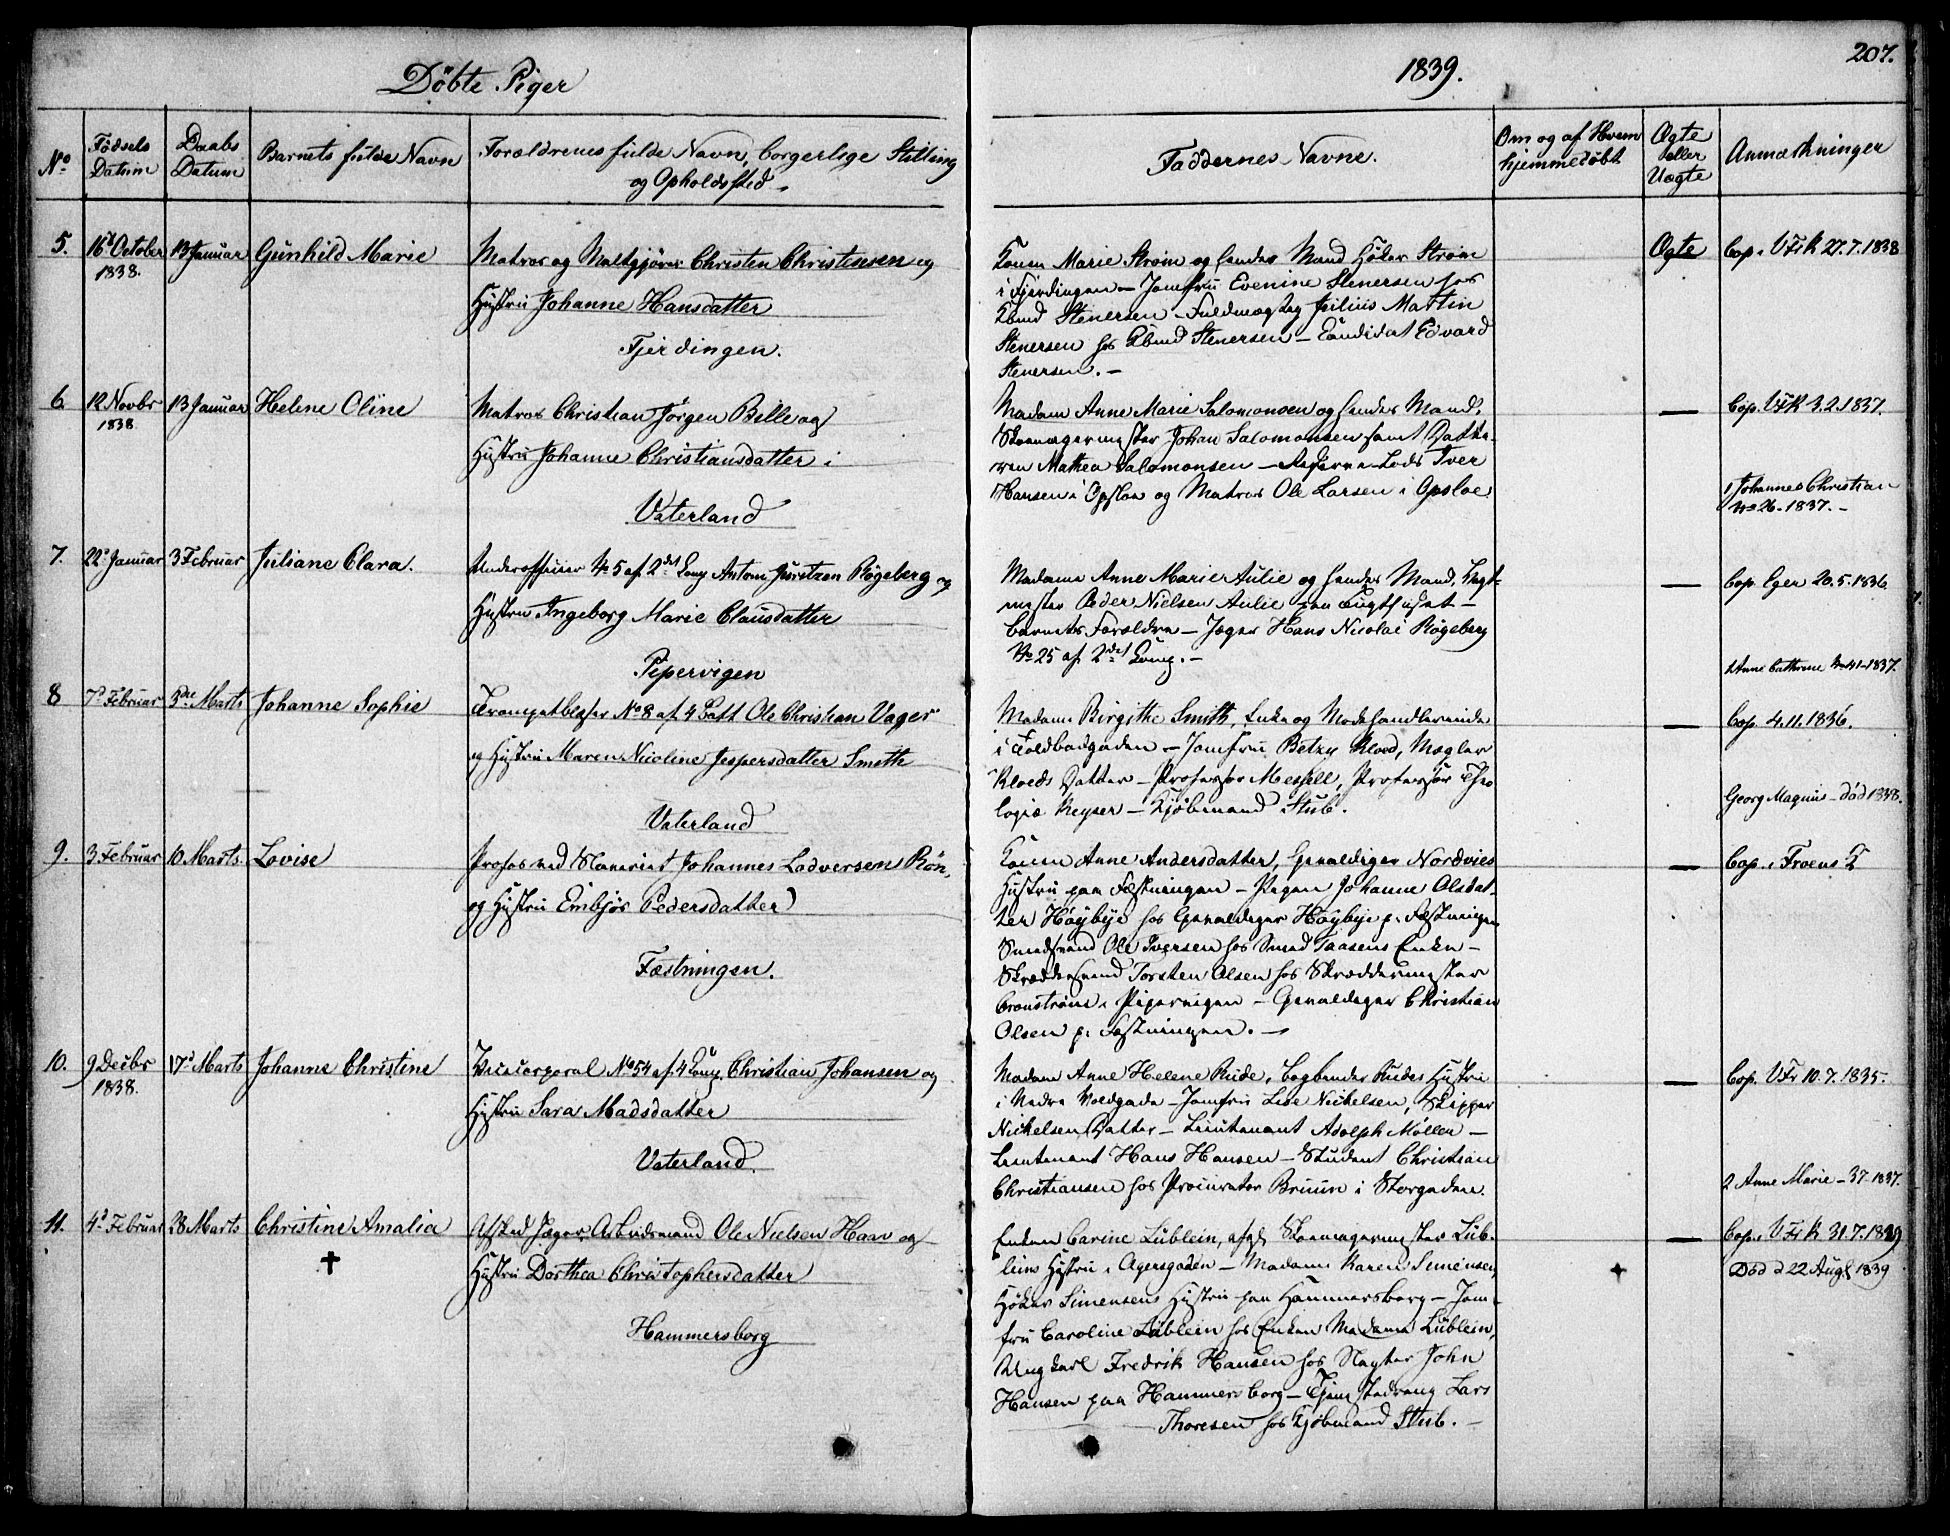 Døbte Piger
1839.
207.
No
Fødsels Datum
Daabs Datum
Barnets fulde Navn
Forældrenes fulde Navn, borgerlige Stilling
og Opholdssted
Faddernes Navne.
Om og af Hvem hjemmedøbt
Ægte eller Uægte
Anmærkninger
5. 16d October 1838. 13 Januar Gunhild Marie
Matros og Christen Christensen og
Hustru Johanne Hansdatter
Fjerdingen.
Konen Marie Strøm og hendes Mand Høker Strøm
i Fjerdingen – Jomfru Evenine Stenersen hos
Stenersen – Fuldmægtig Julius Martin
Stenersen hos Stenersen – Candidat Edvard
Stenersen. –
Ægte
Cop. i VFrk 27.7.1838
6. 12 Novbr 1838. 13 Januar Helene Oline
Matros Christian Jørgen Bille og
Hustru Johanne Christiansdatter i
Vaterland
Madam Anne Marie Salomonsen og hendes Mand,
Skomagermester Johan Salomonsen samt Datte-
ren Mathea Salomonsen – Lods Iver
Hansen i Opsloe og Matros Ole Larsen i Opsloe
—
Cop. VFrk 3.2.1837.
1 Johannes Christian
No 26. 1837. –
7. 22d Januar 3 Februar Juliane Clara.
Underofficier No 5 af 2det Comp Anton Røgeberg og
Hustru Ingeborg Marie Clausdatter
Pipervigen
Madame Anne Marie Aulie og hendes Mand, Vagt-
mester Peder Nielsen Aulie paa Tugthuset –
Barnets Forældre – Jæger Hans Nicolai Røgeberg
No 25 af 2det Comp. –
—
Cop. Eger 20.5.1836
2 Anne Cathrine No 41-1837.
8 7d Februar 3die Marts Johanne Sophie
Trompetblæser No 8 af 4 Batt Ole Christian Vager
og Hustru Maren Nicoline Jespersdatter Smith
Vaterland
Madame Birgithe Smith, Enke og Modehandlerinde
i Toldbodgaden – Jomfru Betzy Kloed, Mægler
Kloeds Datter – Professor Messell, Professor Theo
logiæ Keyser – Kjøbmand Stub.
—
Cop. 4.11.1836.
Georg Magnus – død 1838.
9. 3 Februar 10 Marts. Lovise
Profos ved Slaveriet Johannes Lodversen Røn,
og Hustru Embjør Pedersdatter
Fæstningen.
Konen Anne Andersdatter, Gevaldiger Nordvies
Hustru paa Fæstningen – Pigen Johanne Olsdat-
ter Høybye hos Gevaldiger Høybye p. Fæstningen
Smedsvend Ole Iversen hos Smed Taasens Enke –
Skrædersvend Torsten Olsen hos Skræddermester
Cronstrøm i Pipervigen – Gevaldiger Christian
Olsen p. Fæstningen. –
—
Cop. i Froens K
10. 9 Decbr 1838. 17d Marts Johanne Christine
Vicecorporal No 54 af 4 Comp. Christian Johansen og
Hustru Sara Madsdatter
Vaterland.
Madam Anne Helene Rude, Bogbinder Rudes Hustru
i Nedre Voldgade – Jomfru Lise Nickelsen, Skipper
Nickelsen Datter – Lieutenant Adolph Møller –
Lieutenant Hans Hansen – Student Christian
Christiansen hos Procurator Bruun i Storgaden.
—
Cop. VFr 10.7.1835.
2 Anne Marie – 37. 1837.
11. 4d Februar 28 Marts Christine Amalia
✝
Afsked Jæger, Arbeidsmand Ole Nielsen Haar og
Hustru Dorthea Christophersdatter
Hammersborg
Enken Carine Lüblein, afg. Skomagermester Lüb-
leins Hustru i Agersgaden – Madame Karen Simensen,
Høker Simensens Hustru paa Hammersborg – Jom-
fru Caroline Lüblein hos Enken Madame Lüblein,
Ungkarl Fredrik Hansen hos Vægter John
Hansen paa Hammersborg – Tjenestedreng Lars
Thoresen hos Kjøbmand Stub. –
—
Cop. i VFrk 31.7.1829
Død d 22 Augs 1839